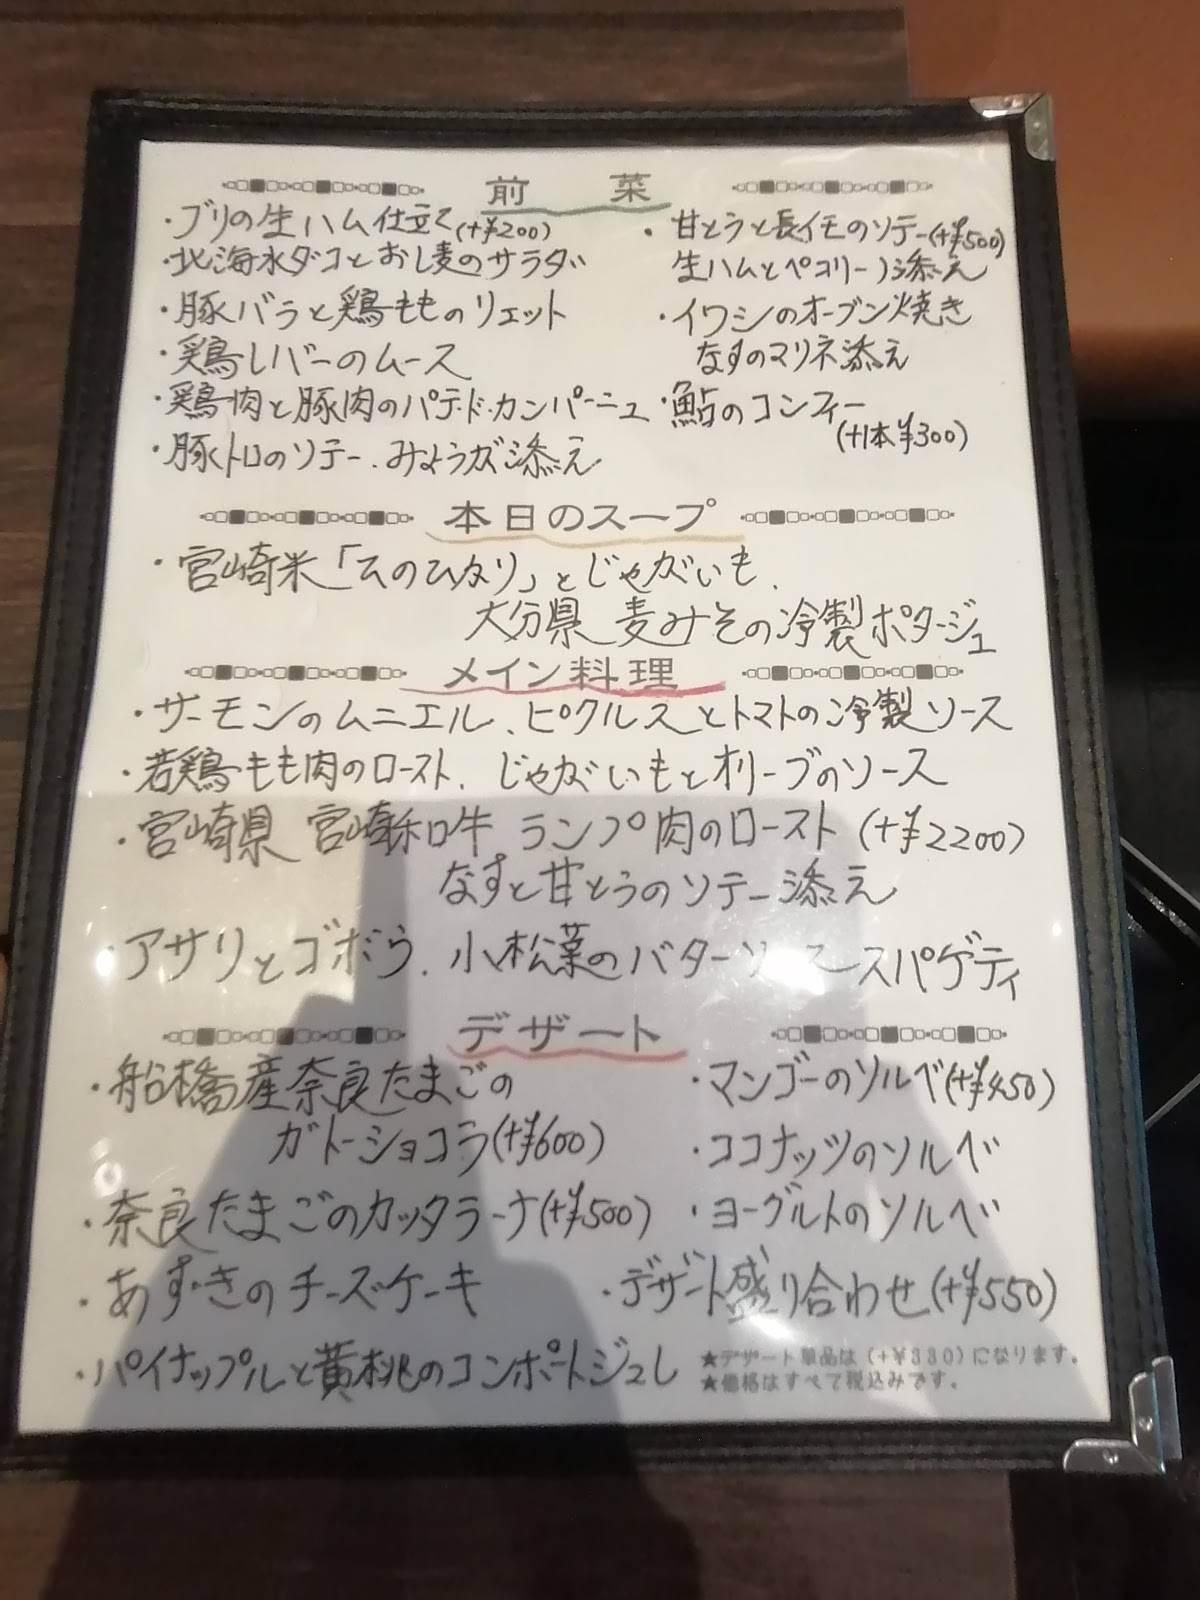 前 菜
・ブリの生ハム仕立て(+¥200)
・北海水ダコとおし麦のサラダ
・豚バラと鶏もものリエット
・鶏レバーのムース
・鶏肉と豚肉のパテ・ド・カンパーニュ
・豚トロのソテー、みょうが添え
・甘とうと長イモのソテー(+¥500)
生ハムとペコリーノ添え
・イワシのオーブン焼き
なすのマリネ添え
・鮎のコンフィー
(+1本¥300)
本日のスープ
・宮崎米「ひのひかり」とじゃがいも、
大分県 麦みその冷製ポタージュ
メイン料理
・サーモンのムニエル、ピクルスとトマトの冷製ソース
・若鶏もも肉のロースト、じゃがいもとオリーブのソース
・宮崎県 宮崎和牛 ランプ肉のロースト (+¥2200)
なすと甘とうのソテー添え
・アサリとゴボウ、小松菜のバターソース スパゲティ
デザート
・船橋産奈良たまごの
ガトーショコラ(+¥600)
・奈良たまごのカッタラーナ(+¥500)
・あずきのチーズケーキ
・パイナップルと黄桃のコンポートジュレ
・マンゴーのソルベ(+¥450)
・ココナッツのソルベ
・ヨーグルトのソルベ
・デザート盛り合わせ(+¥550)
★デザート単品は(+¥330)になります。
★価格はすべて税込みです。